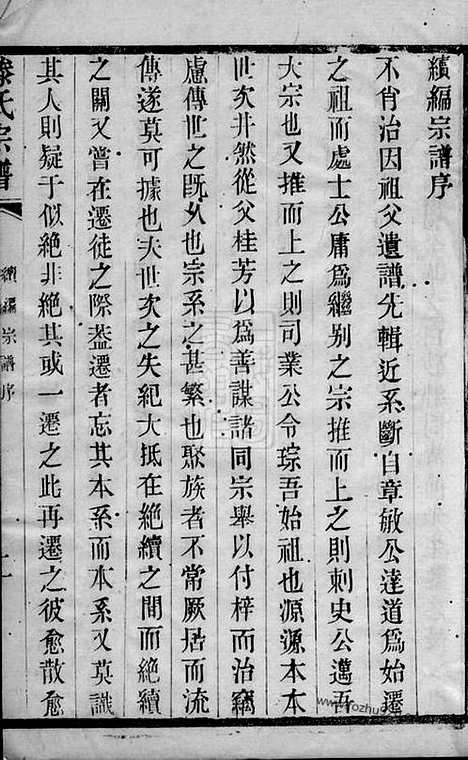 續編宗譜序
不肖治因祖父遺譜先輯近系斷自章敏公達道爲始遷
之祖而處士公庸爲繼别之宗推而上之則刺史公邁吾
大宗也又推而上之則司業公令琮吾始祖也源源本本
世次井然從父桂芳以爲善謀諸同宗舉以付梓而治竊
慮傳世之既久也宗系之甚繁也聚族者不常厥居而流
傳遂莫可據也夫世次之失紀大抵在絶續之間而絶續
之關又嘗在遷徙之際葢遷者忘其本系而本系又莫識
其人則疑于似絶非絶其或一遷之此再遷之彼愈散愈
滕氏宗譜
續編宗譜序
www.rozhuo